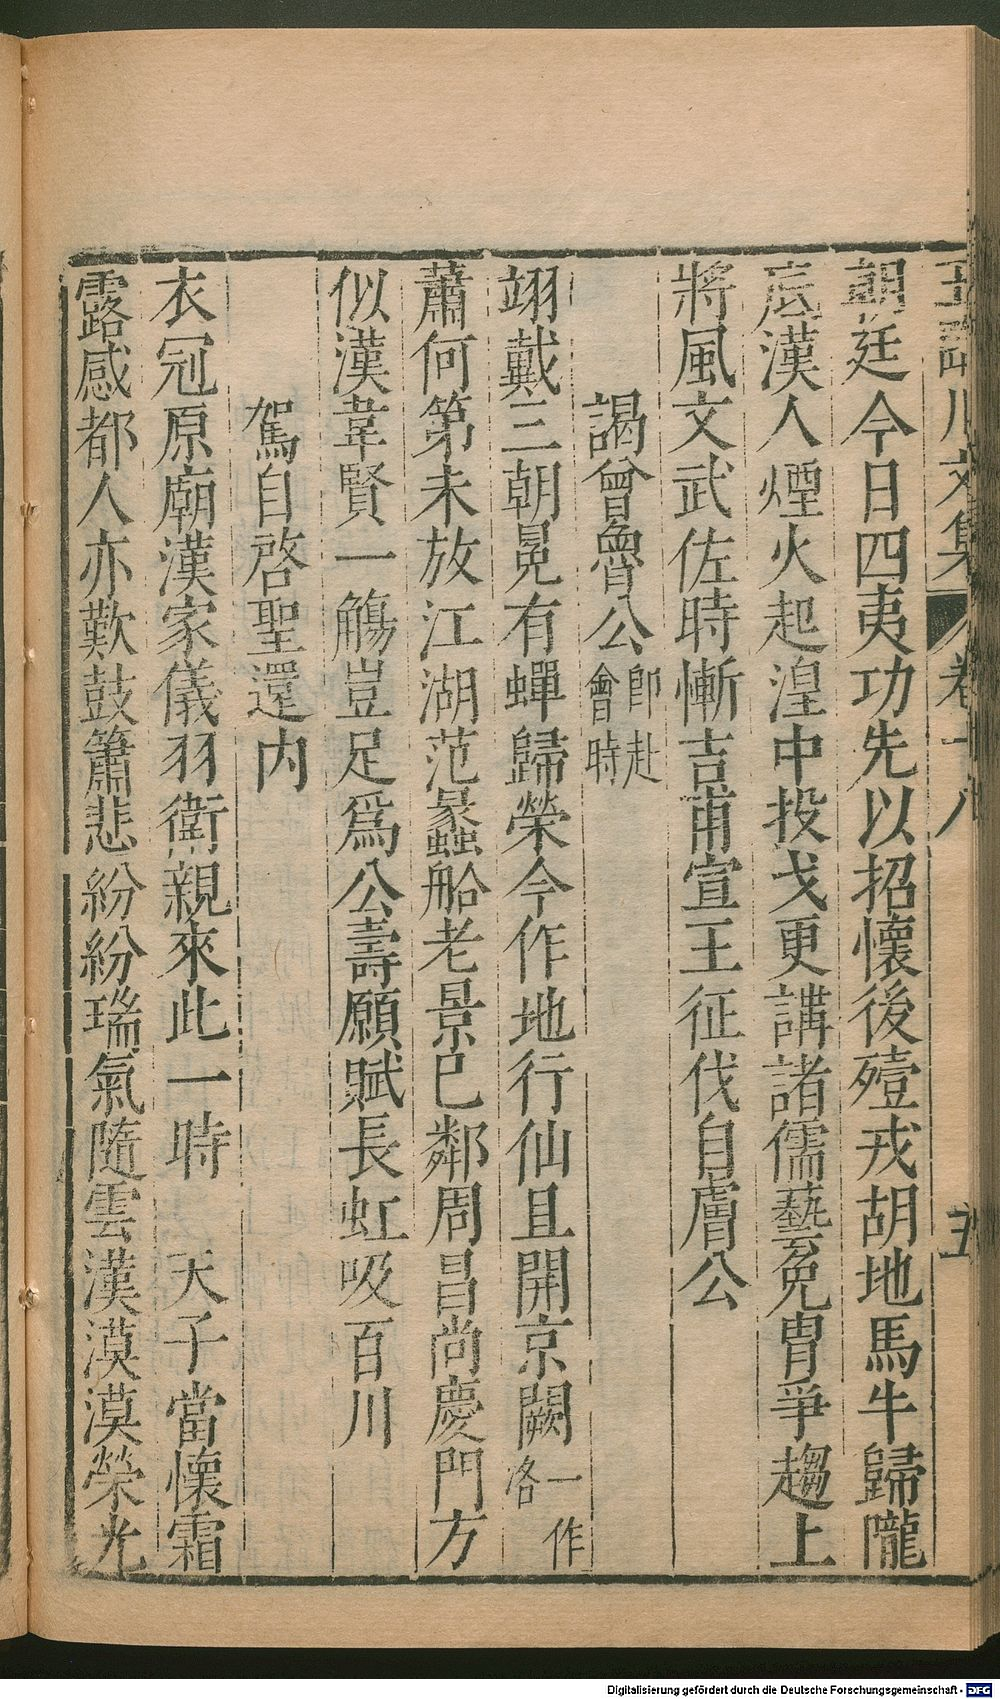 王臨川文集 卷十八 五
朝廷今日四夷功先以招懷後殪戎胡地馬牛歸隴
底漢人煙火起湟中投戈更講諸儒藝免冑爭趨上
將風文武佐時慚吉甫宣王征伐自膚公
謁曾魯公 即赴會時
翊戴三朝冕有蟬歸榮今作地行仙且開京闕 一作洛
蕭何第未放江湖范蠡船老景已鄰周呂尚慶門方
似漢韋賢一觴豈足爲公壽願賦長虹吸百川
駕自啓聖還內
衣冠原廟漢家儀羽衛親來此一時 天子當懷霜
露感都人亦歎鼓簫悲紛紛瑞氣隨雲漢漠漠榮光
Digitalisierung gefördert durch die Deutsche Forschungsgemeinschaft - DFG